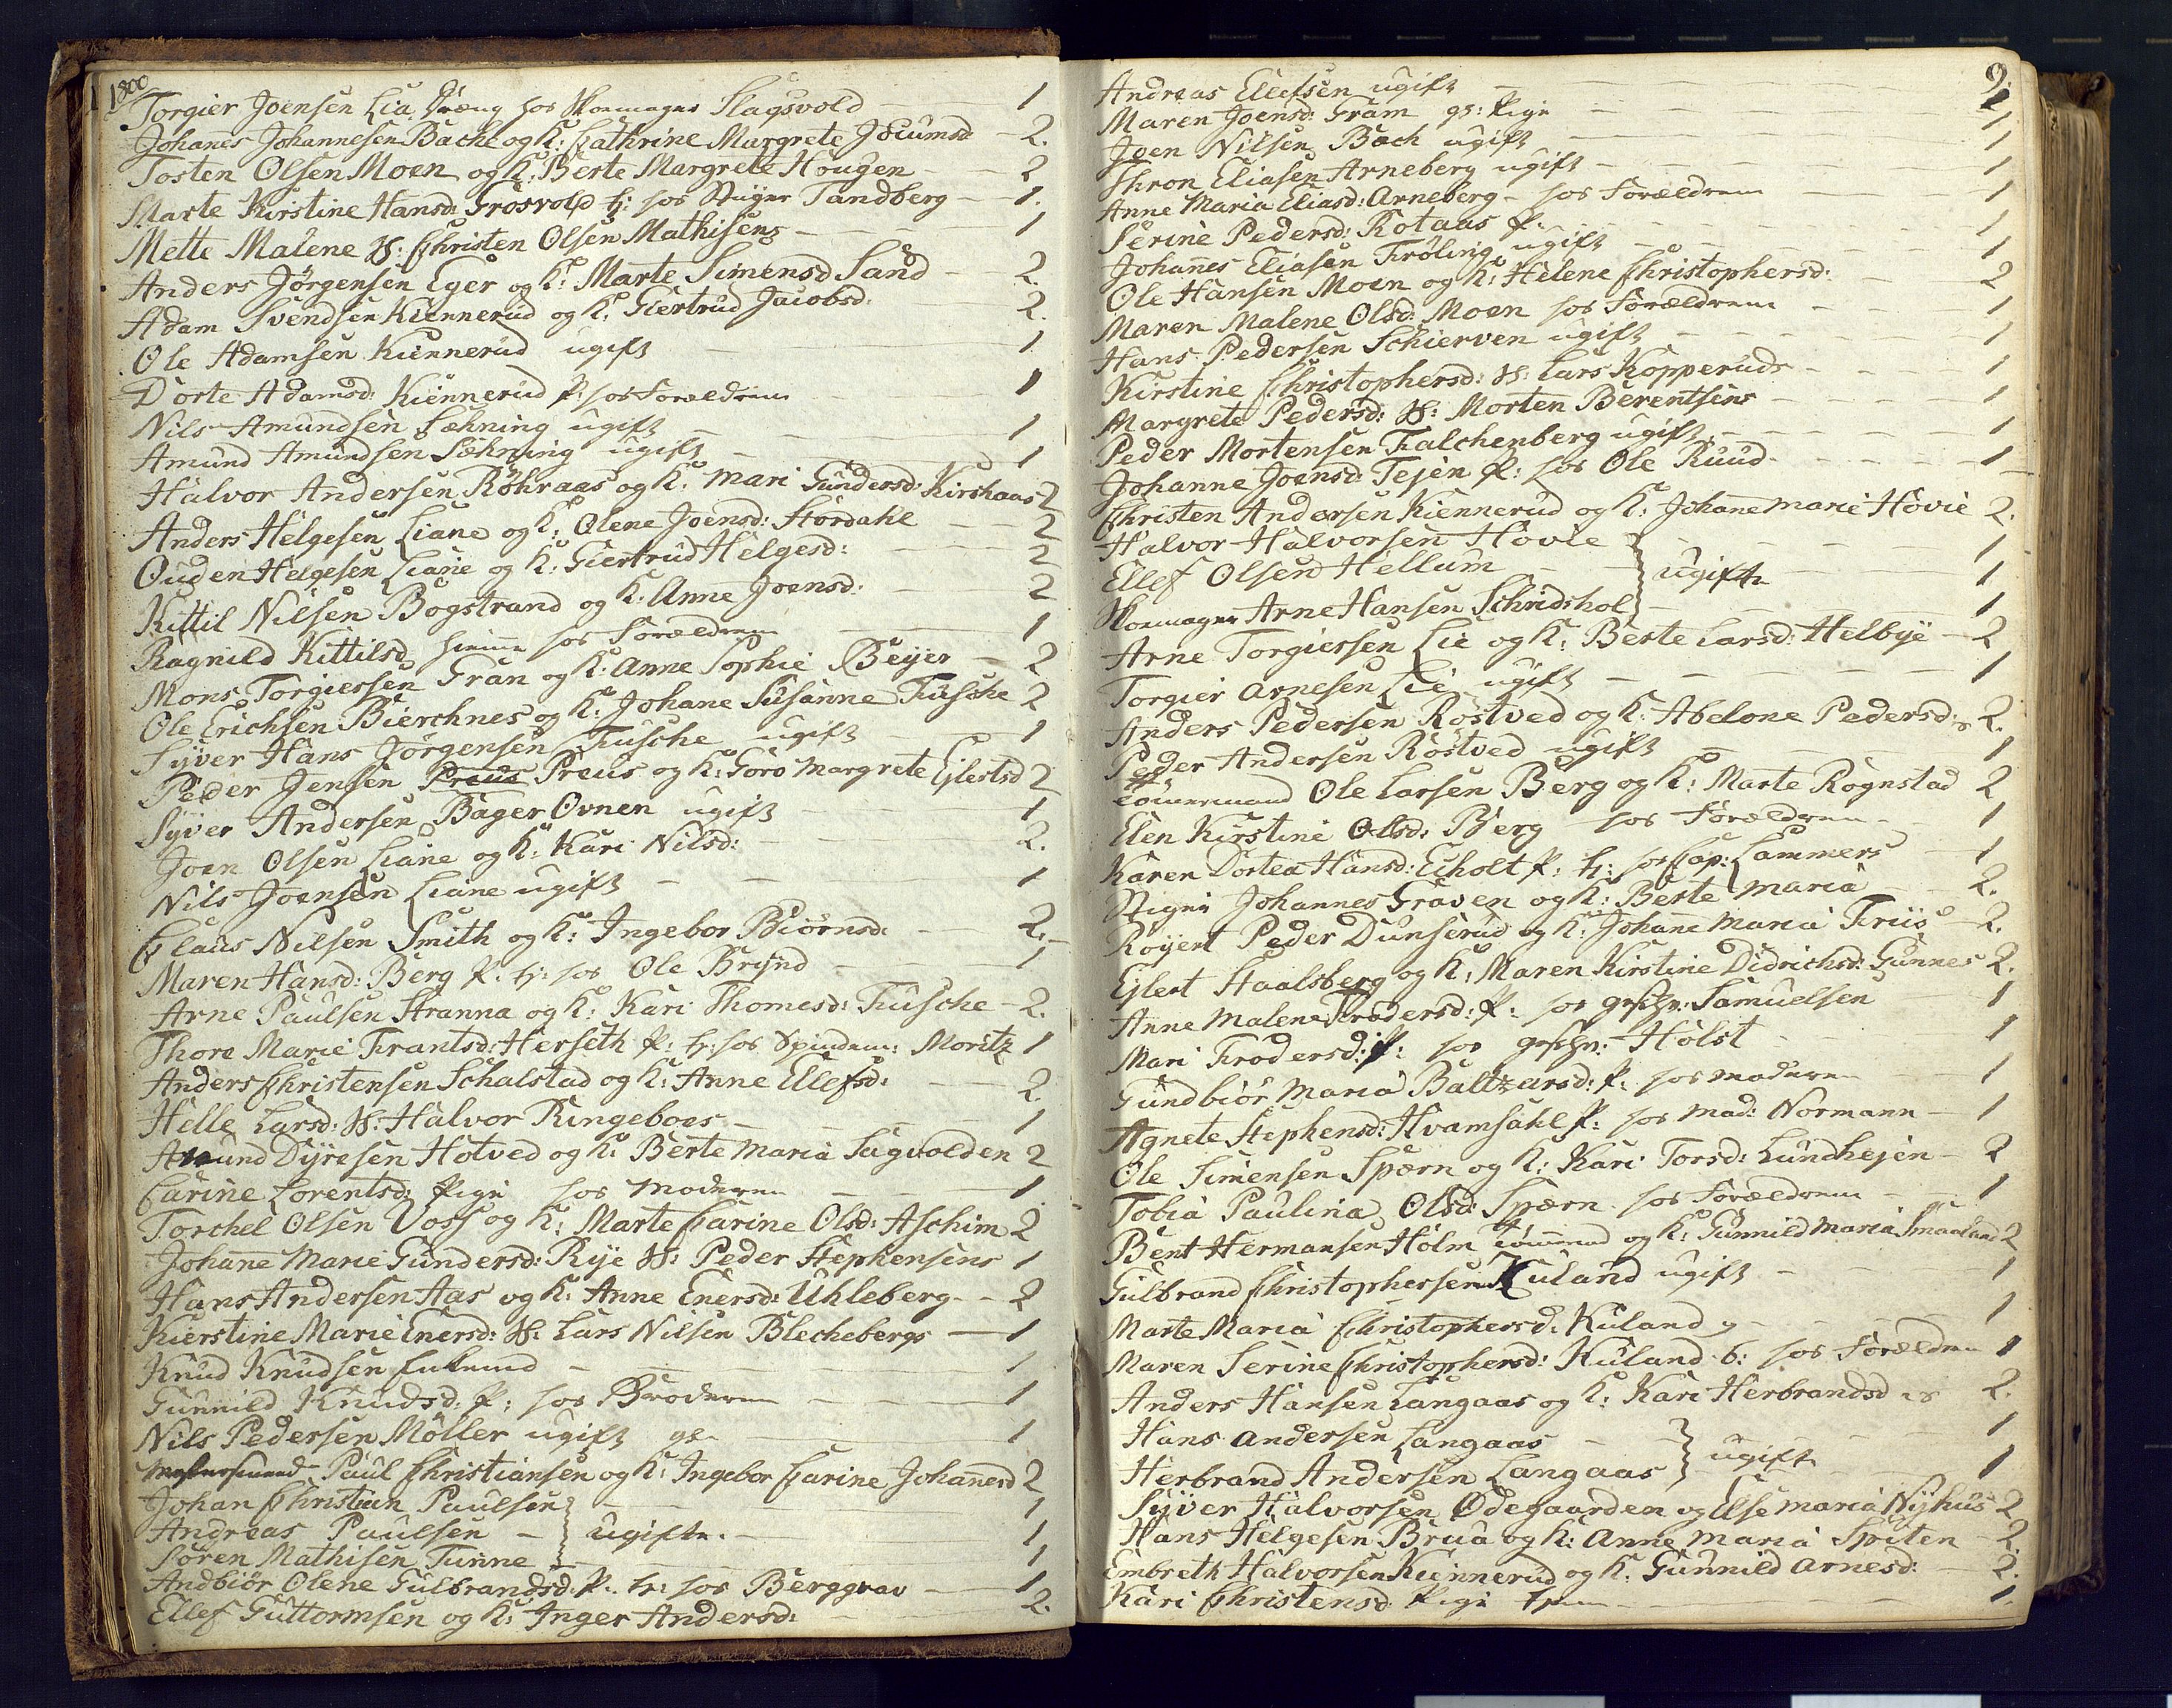 1800
Torgier Joensen Lia Dræng hos Skoemager Slagsvold 1
Johañes Johannesen Bache og K: Cathrine Margrete Jocumsd 2.
Tosten Olsen Moen og K: Berte Margrete Hougen 2
Marte Kirstine Hansd: Grosvold tj: hos Stiger Tandberg 1.
Mette Malene H: Christen Olsen Mathisens 1
Anders Jörgensen Eger og K: Marte Simensd Sand 2.
Adam Svendsen Kiennerud og K: Giertrud Jacobsd. 2.
Ole Adamsen Kiennerud ugift 1
Dorte Adamsd: Kiennerud P: hos Forældrene 1
Nils Amundsen Sæhning ugift 1
Amund Amundsen Sæhning ugift 1
Halvor Andersen Röhraas og K: Mari Gundersd: Kirshaas 2
Anders Helgesen Liane og K: Olene Joensd: Stordahl 2
Ouden Helgesen Liane og K: Giertrud Helgesd: 2
Kittil Nilsen Bogstrand og K: Anne Joensd. 2
Ragnild Kittilsd hieme hos Forældrene 1
Mons Torgiersen Gran og K: Anne Sophie Beyer 2
Ole Erichsen Bierchnes og K: Johane Susanne Fusche 2
Syver Hans Jörgensen Fusche ugift 1
Peder Jensen Preus Preus og K: Goro Margrete Ejlertsd 2
Syver Andersen Bager Ovnen ugift 1
Joen Olsen Liane og K: Kari Nilsd: 2.
Nils Joensen Liane ugift 1
Claus Nilsen Smith og K: Ingebor Biörnsd. 2.
Maren Hansd: Berg P. tj: hos Ole Brynd 1
Arne Paulsen Stranna og K: Kari Thomesd: Fusche 2.
Thore Marie Frantsd: Herseth P: tj: hos Spindem: Moritz 1
Anders Christensen Schalstad og K: Anne Ellefsd: 2.
Helle Larsd: H: Halvor Ringeboes 1
Amund Dyresen Hotved og K: Berte Maria Sagvolden 2
Carine Lorentsd: Pige hos Moderen 1
Torchel Olsen Voss og K: Marte Carine Olsd: Aschim 2
Johañe Marie Gundersd: Rye H: Peder Stephensens 1
Hans Andersen Aas og K: Anne Enersd: Uhleberg 2
Kierstine Marie Enersd: H: Lars Nilsen Blechebergs 1
Knud Knudsen Enkemd 1
Gunnild Knudsd: P: hos Broderen 1
Nils Pedersen Möller ugift gl 1
Paul Christiansen og K: Ingebor Carine Johanesd 2
Johan Christian Paulsen 1
Andreas Paulsen ugifte. 1
Sören Mathisen Tunne 1
Andbiör Olene Gulbrandsd. P. tj: hos Berggrav 1
Ellef Guttormsen og K: Inger Andersd: 2.
9.
Andreas Ellefsen ugift 1
Maren Joensd: Gram gl: Pige 1
Joen Nilsen Bæch ugift 1
Thron Eliasen Arneberg ugift 1
Anne Maria Eliasd: Arneberg hos Forældrene 1
Serine Pedersd: Rotaas P. 1
Johañes Eliasen Fröling ugift 1
Ole Hansen Moen og K: Helene Christophersd: 2
Maren Malene Olsd: Moen hos Forældrene 1
Hans Pedersen Schierven ugift 1
Kirstine Christophersd: H: Lars Kopperuds 1
Margrete Pedersd: H: Morten Berentsens 1
Peder Mortensen Falchenberg ugift 1
Johanne Joensd: Tejen P: hos Ole Ruud 1
Christen Andersen Kiennerud og K: Johane Marie Hovie 2.
Halvor Halvorsen Hovie 1
Ellef Olsen Hellum ugifte 1
Skoemager Arne Hansen Schridshol 1
Arne Torgiersen Lie og K: Berte Larsd: Helbye 2
Torgier Arnesen Lie ugift 1
Anders Pedersen Röstved og K: Abelone Pedersd: 2.
Peder Andersen Röstved ugift 1
Tömmermand Ole Larsen Berg og K: Marte Rognstad 2
Elen Kirstine Olsd: Berg hos Forældrene 1
Karen Dortea Hansd: Echolt P: tj: hos Cap: Lammers 1
Stiger Johannes Graven og K: Berte Maria 2.
Röyert Peder Dunserud og K: Johane Maria Friis 2.
Ejlert Staalsberg og K: Maren Kirstine Didrichsd: Gunnes 2.
Anne Malene Frodersd: P: hos geschw: Samuelsen 1
Mari Frodersd: P: hos geschw: Holst 1
Gundbiör Maria Baltzarsd: P: hos Moderen 1
Agnete Stephensd: Hvamsahl P: hos Mad: Normann 1
Ole Simensen Spærn og K: Kari Torsd: Lundhejen 2
Tobia Paulina Olsd: Spærn hos Forældrene 1
Bent Hermansen Holm Tömmermd og K: Gunnild Maria Smaaland 2
Gulbrand Christophersen Kuland ugift 1
Marte Maria Christophersd. Kuland 1
Maren Serine Christophersd: Kuland 6: hos Forældrene 1
Anders Hansen Langaas og K: Kari Herbrandsd 2.
Hans Andersen Langaas 1
Herbrand Andersen Langaas ugift 1
Syver Halvorsen Ödegaarden og Else Maria Nyhus 2
Hans Helgesen Brua og K: Anne Maria Spiten 2.
Embreth Halvorsen Kiennerud og K: Gunnild Arnesd: 2.
Kari Christensd: Pige 1.